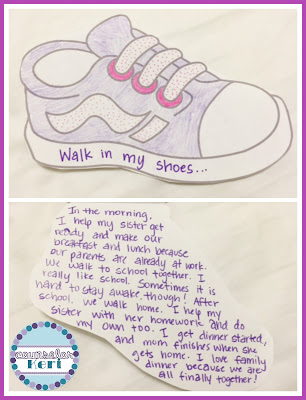 Walk in my shoes...
In the morning,
I help my sister get
ready and make our
breakfast and lunch because
our parents are already at work.
We walk to school together. I
really like school. Sometimes it is
hard to stay awake, though! After
school, we walk home. I help my
sister with her homework and do
my own too. I get dinner started,
and mom finishes when she
gets home. I love family
dinner because we are
all finally together!
counselor
Keri